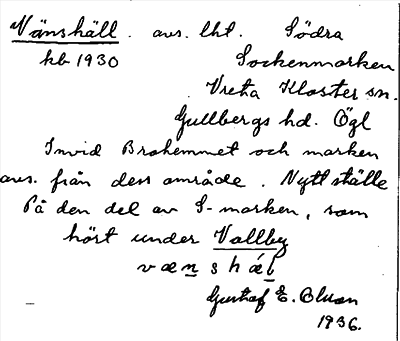 Vänshäll. avs. lht. Södra
kb 1930 Sockenmarken
Vreta Kloster sn.
Gullbergs hd. Ögl
Invid Brohemmet och marken
avs. från dess område. Nytt ställe
På den del av S-marken, som
hört under Vallby
Gustaf E. Bluan
1936.